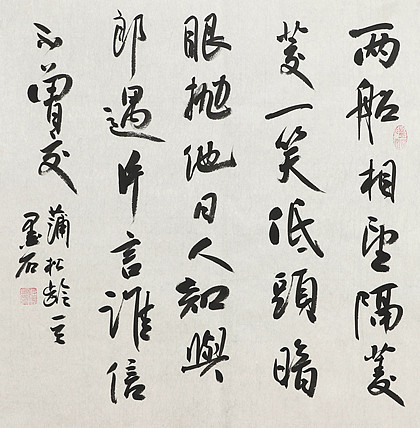 两船相望隔菱
茭一笑低頭暗
眼抛他日人知與
郎遇片言誰信
不曾交
蒲松齡
墨石